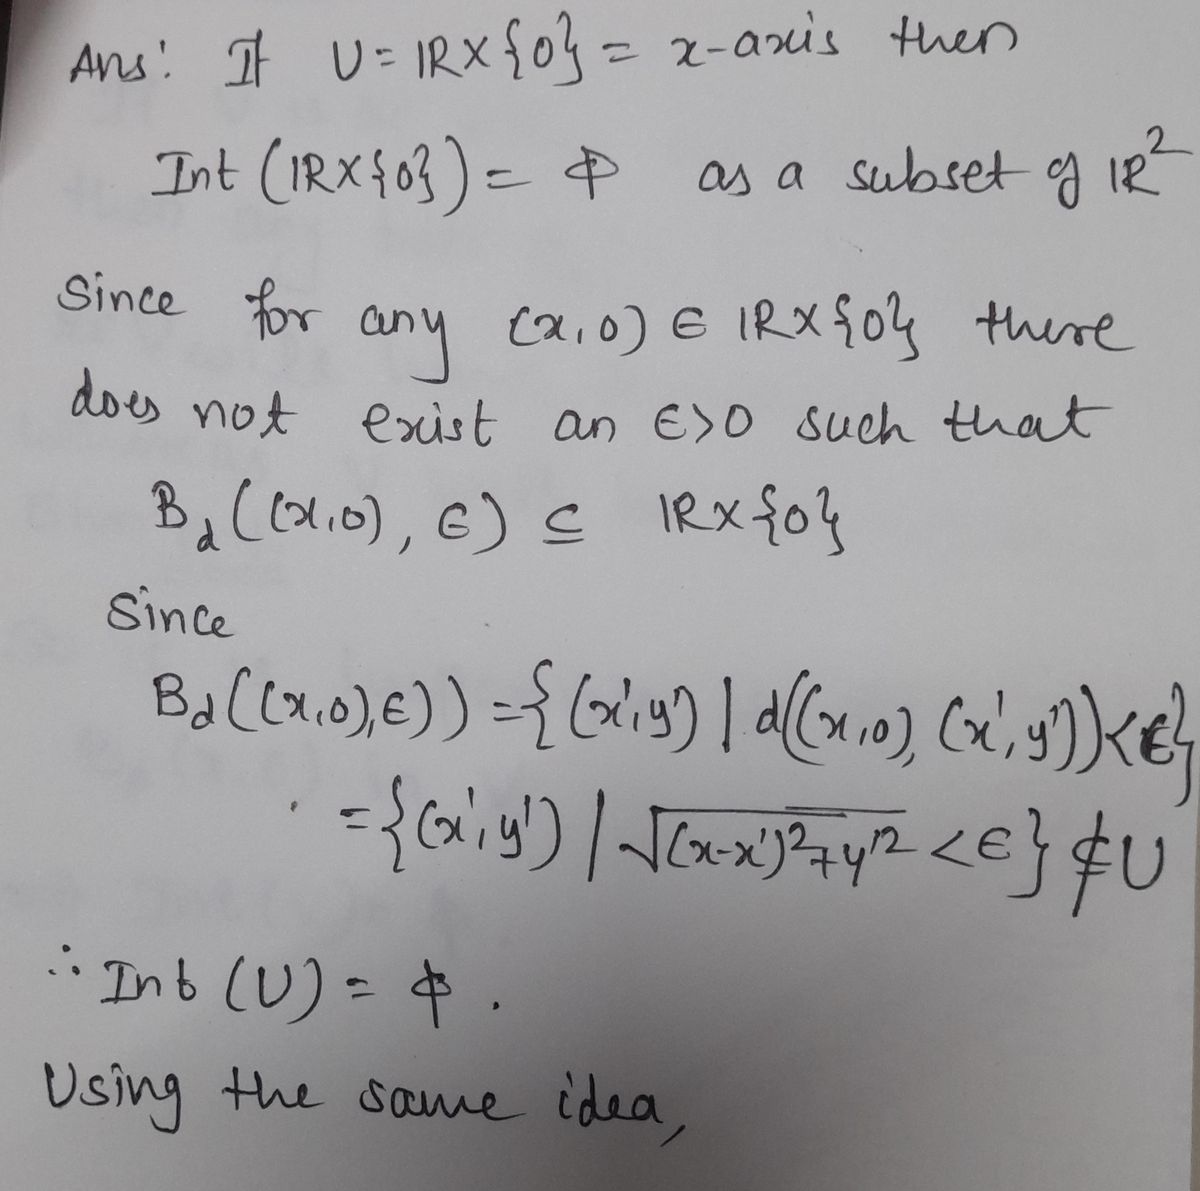 Ans: If U = ℝ×{0} = x-axis then
Int (ℝ×{0}) = φ as a subset of ℝ²
Since for any (x,0) ∈ ℝ×{0} there
does not exist an ε>0 such that
B_d((x,0), ε) ⊆ ℝ×{0}
Since
B_d((x,0),ε)) = {(x',y') | d((x,0), (x',y'))<ε}
= {(x',y') | √(x-x')²+y'² < ε} ⊄ U
∴ Int (U) = φ.
Using the same idea,